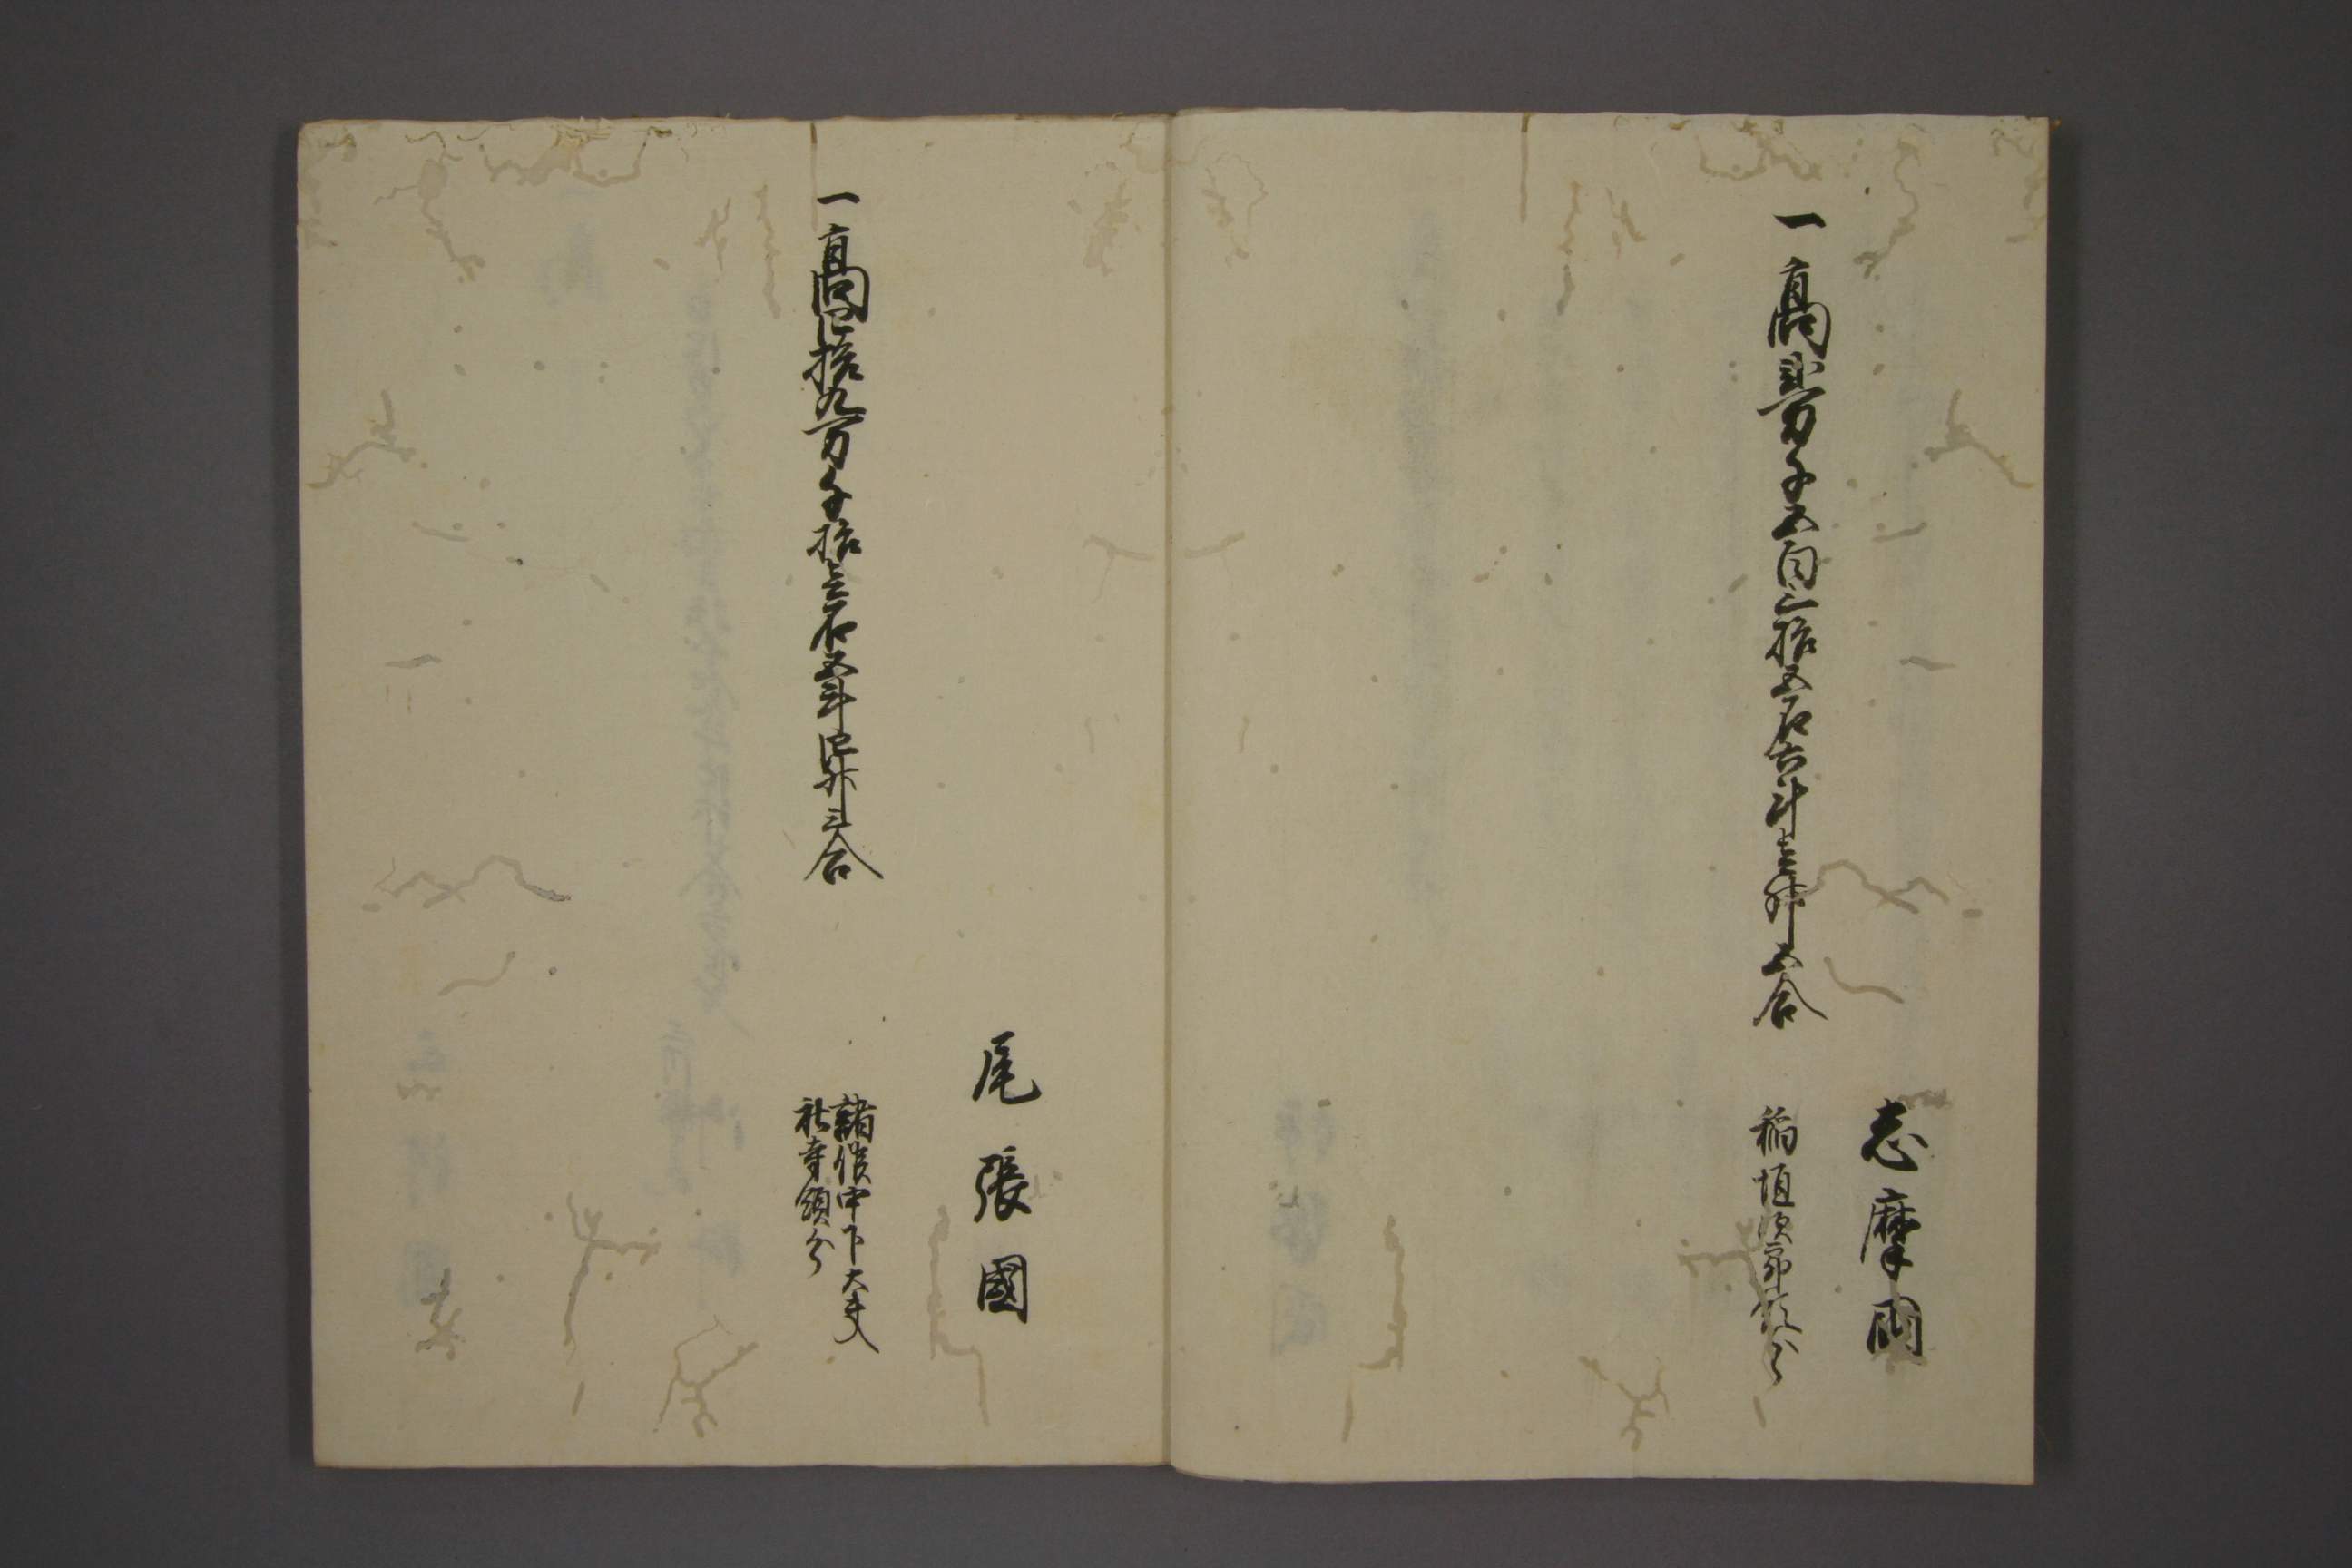 志摩国
一高貳万千五百三拾五石六斗壱升五合
稲垣次郎領分
尾張國
一高四拾九万千拾壱石五斗四升三合
諸侯中下大夫
社寺領分